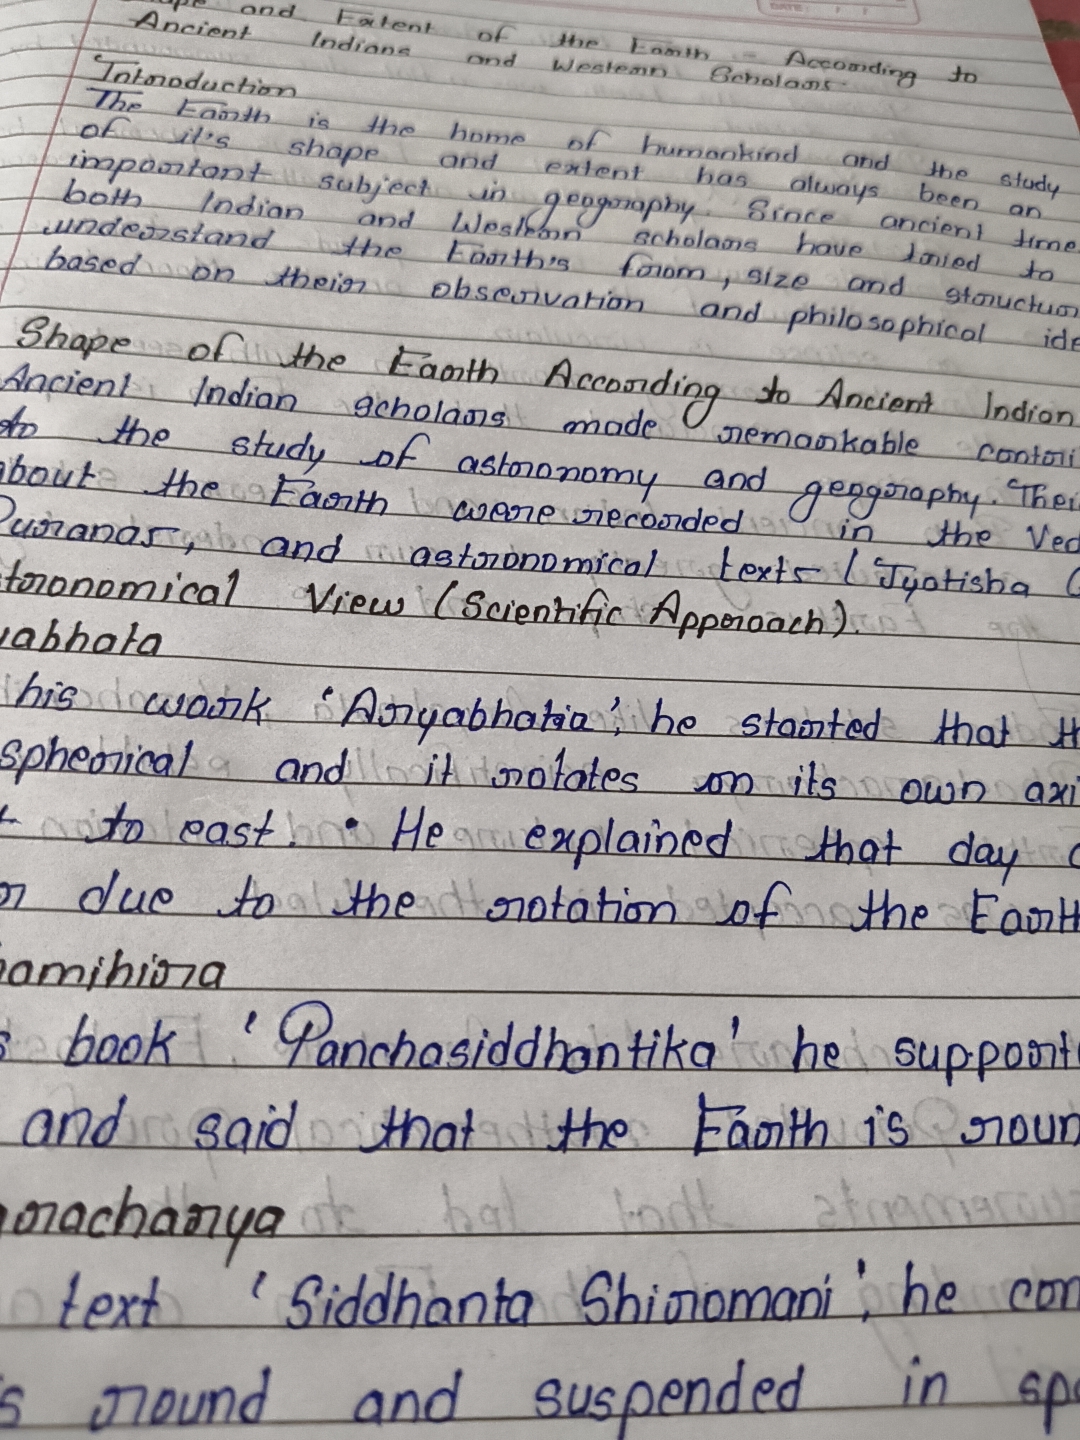 and Extent of the Earth - According to
Ancient Indians and Western Scholars
Introduction
The Earth is the home of humankind and the study
of it's shape and extent has always been an
important subject in geography. Since ancient time
both Indian and Western scholars have tried to
understand the Earth's form, size and structur
based on their observation and philosophical ide
Shape of the Earth According to Ancient Indian
Ancient Indian scholars made remarkable contri
to the study of astronomy and geography. Thei
bout the Earth were recorded in the Ved
Puranas, and astronomical texts (Jyotisha
tronomical View (Scientific Approach).
yabhata
his work 'Aryabhatia', he started that th
spherical and it rotates on its own axi
t to east. • He explained that day
r due to the rotation of the Earth
hamihira
s book 'Panchasiddhantika' he support
and said that the Earth is roun
rachanya
text 'Siddhanta Shiromani', he con
s round and suspended in spa